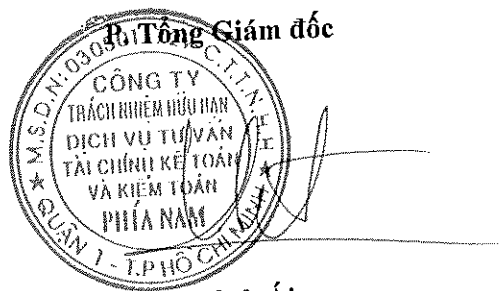 P. Tổng Giám đốc
M.S.D.N: 03050 C.T.T.N.H.H
CÔNG TY
TRÁCH NHIỆM HỮU HẠN
DỊCH VỤ TƯ VẤN
TÀI CHÍNH KẾ TOÁN
VÀ KIỂM TOÁN
PHÍA NAM
QUẬN 1 - T.P HỒ CHÍ MINH